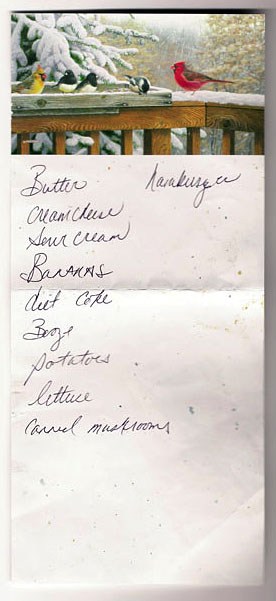 Butter hamburger
cream cheese
sour cream
BANANAS
diet coke
Booze
potatoes
lettuce
canned mushrooms